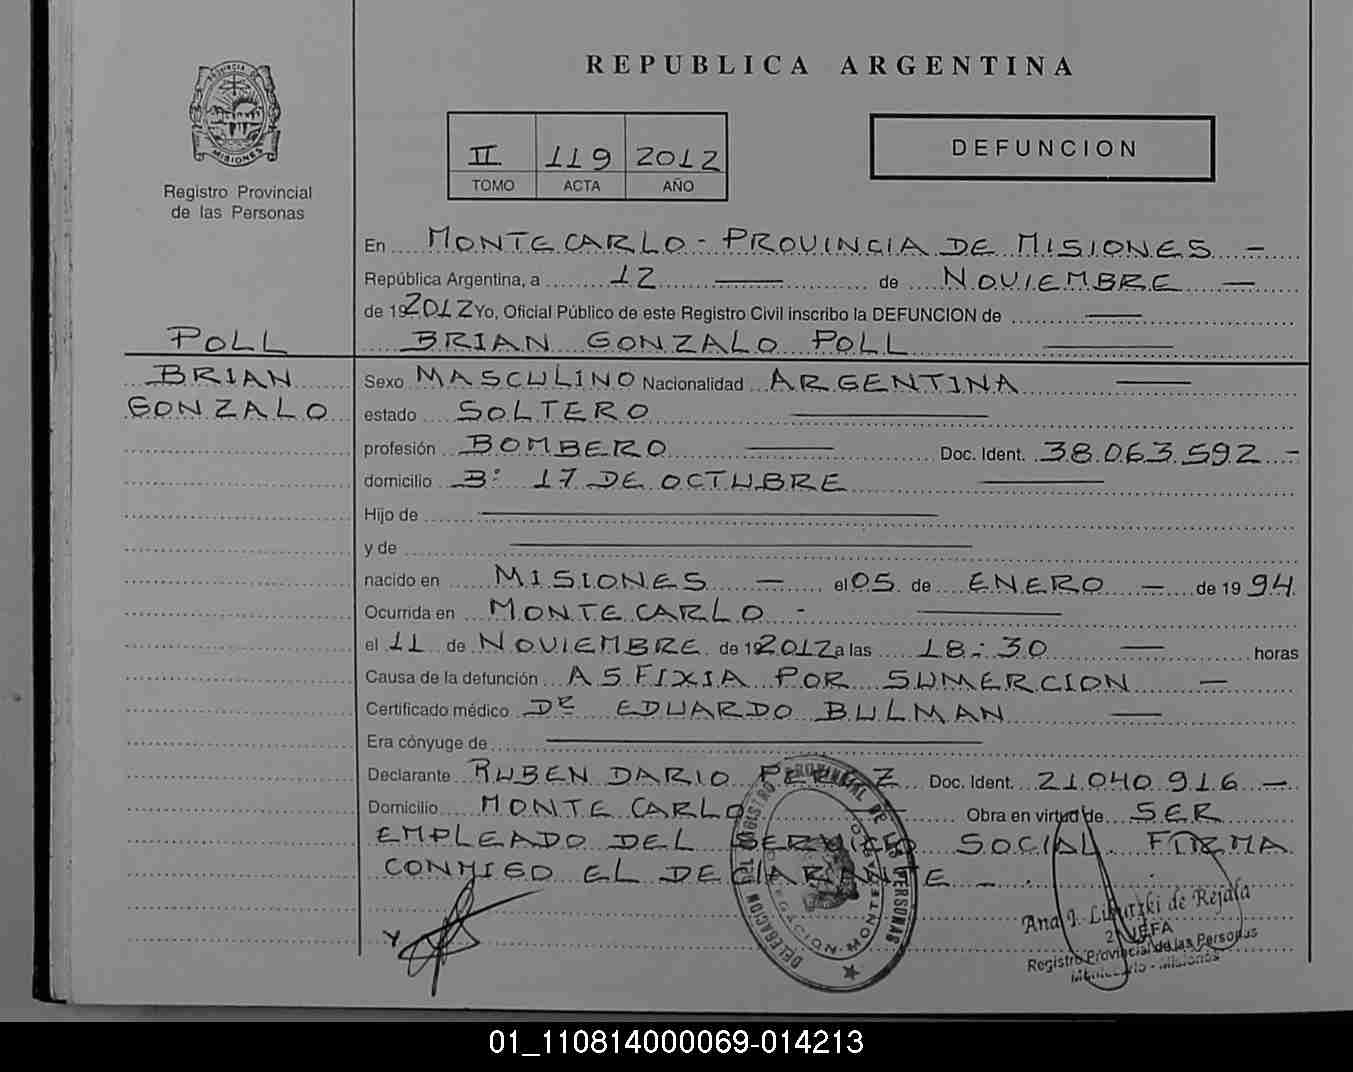 REPUBLICA ARGENTINA
PROVINCIA DE
MISIONES
Registro Provincial
de las Personas
II 119 2012
TOMO ACTA AÑO
DEFUNCION
En MONTECARLO - PROVINCIA DE MISIONES -
República Argentina, a 12 — de NOVIEMBRE —
de 192012 Yo, Oficial Público de este Registro Civil inscribo la DEFUNCION de —
BRIAN GONZALO POLL —
POLL
BRIAN
GONZALO
Sexo MASCULINO Nacionalidad ARGENTINA —
estado SOLTERO —
profesión BOMBERO — Doc. Ident. 38.063.592 -
domicilio B: 17 DE OCTUBRE —
Hijo de —
y de —
nacido en MISIONES — el 05 de ENERO — de 1994.
Ocurrida en MONTECARLO - —
el 11 de NOVIEMBRE de 192012 a las 18:30 — horas
Causa de la defunción ASFIXIA POR SUMERCION —
Certificado médico DR EDUARDO BULMAN —
Era cónyuge de —
Declarante RUBEN DARIO Doc. Ident. 21040916 -
Domicilio MONTE CARLO — Obra en virtud de SER
EMPLEADO DEL SERVICIO SOCIAL. FIRMA
CONMIGO EL DECLARANTE -
DELEGACION DEL REGISTRO PROVINCIAL DE LAS PERSONAS
DELEGACION - MONTECARLO
Ana J. de Rejala
2º JEFA
Registro Provincial de las Personas
Montecarlo - Misiones
01_110814000069-014213